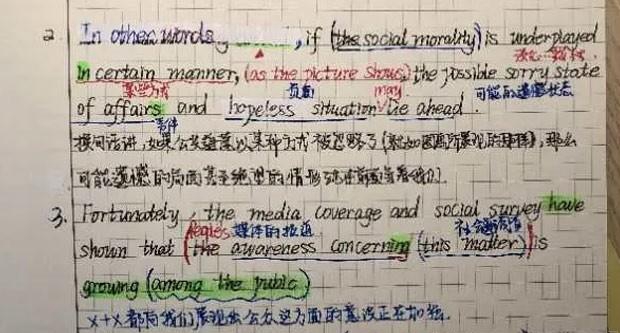 2. In other words, if (the social morality) is underplayed
in certain manner, (as the picture shows) the possible sorry state
某些方式 负面 may 可能的遗憾状态
of affairs and hopeless situation lie ahead.
事件
换句话讲,如果公共道德以某种方式被忽略了(就如图画所展现的那样),那么
可能遗憾的局面甚至绝望的情形
3. Fortunately, the media coverage and social survey have
Peoples 媒体的报道 社会调查
shown that (the awareness concerning (this matter)) is
growing (among the public)
x+x都向我们展现出公众这方面的意识正在加强.